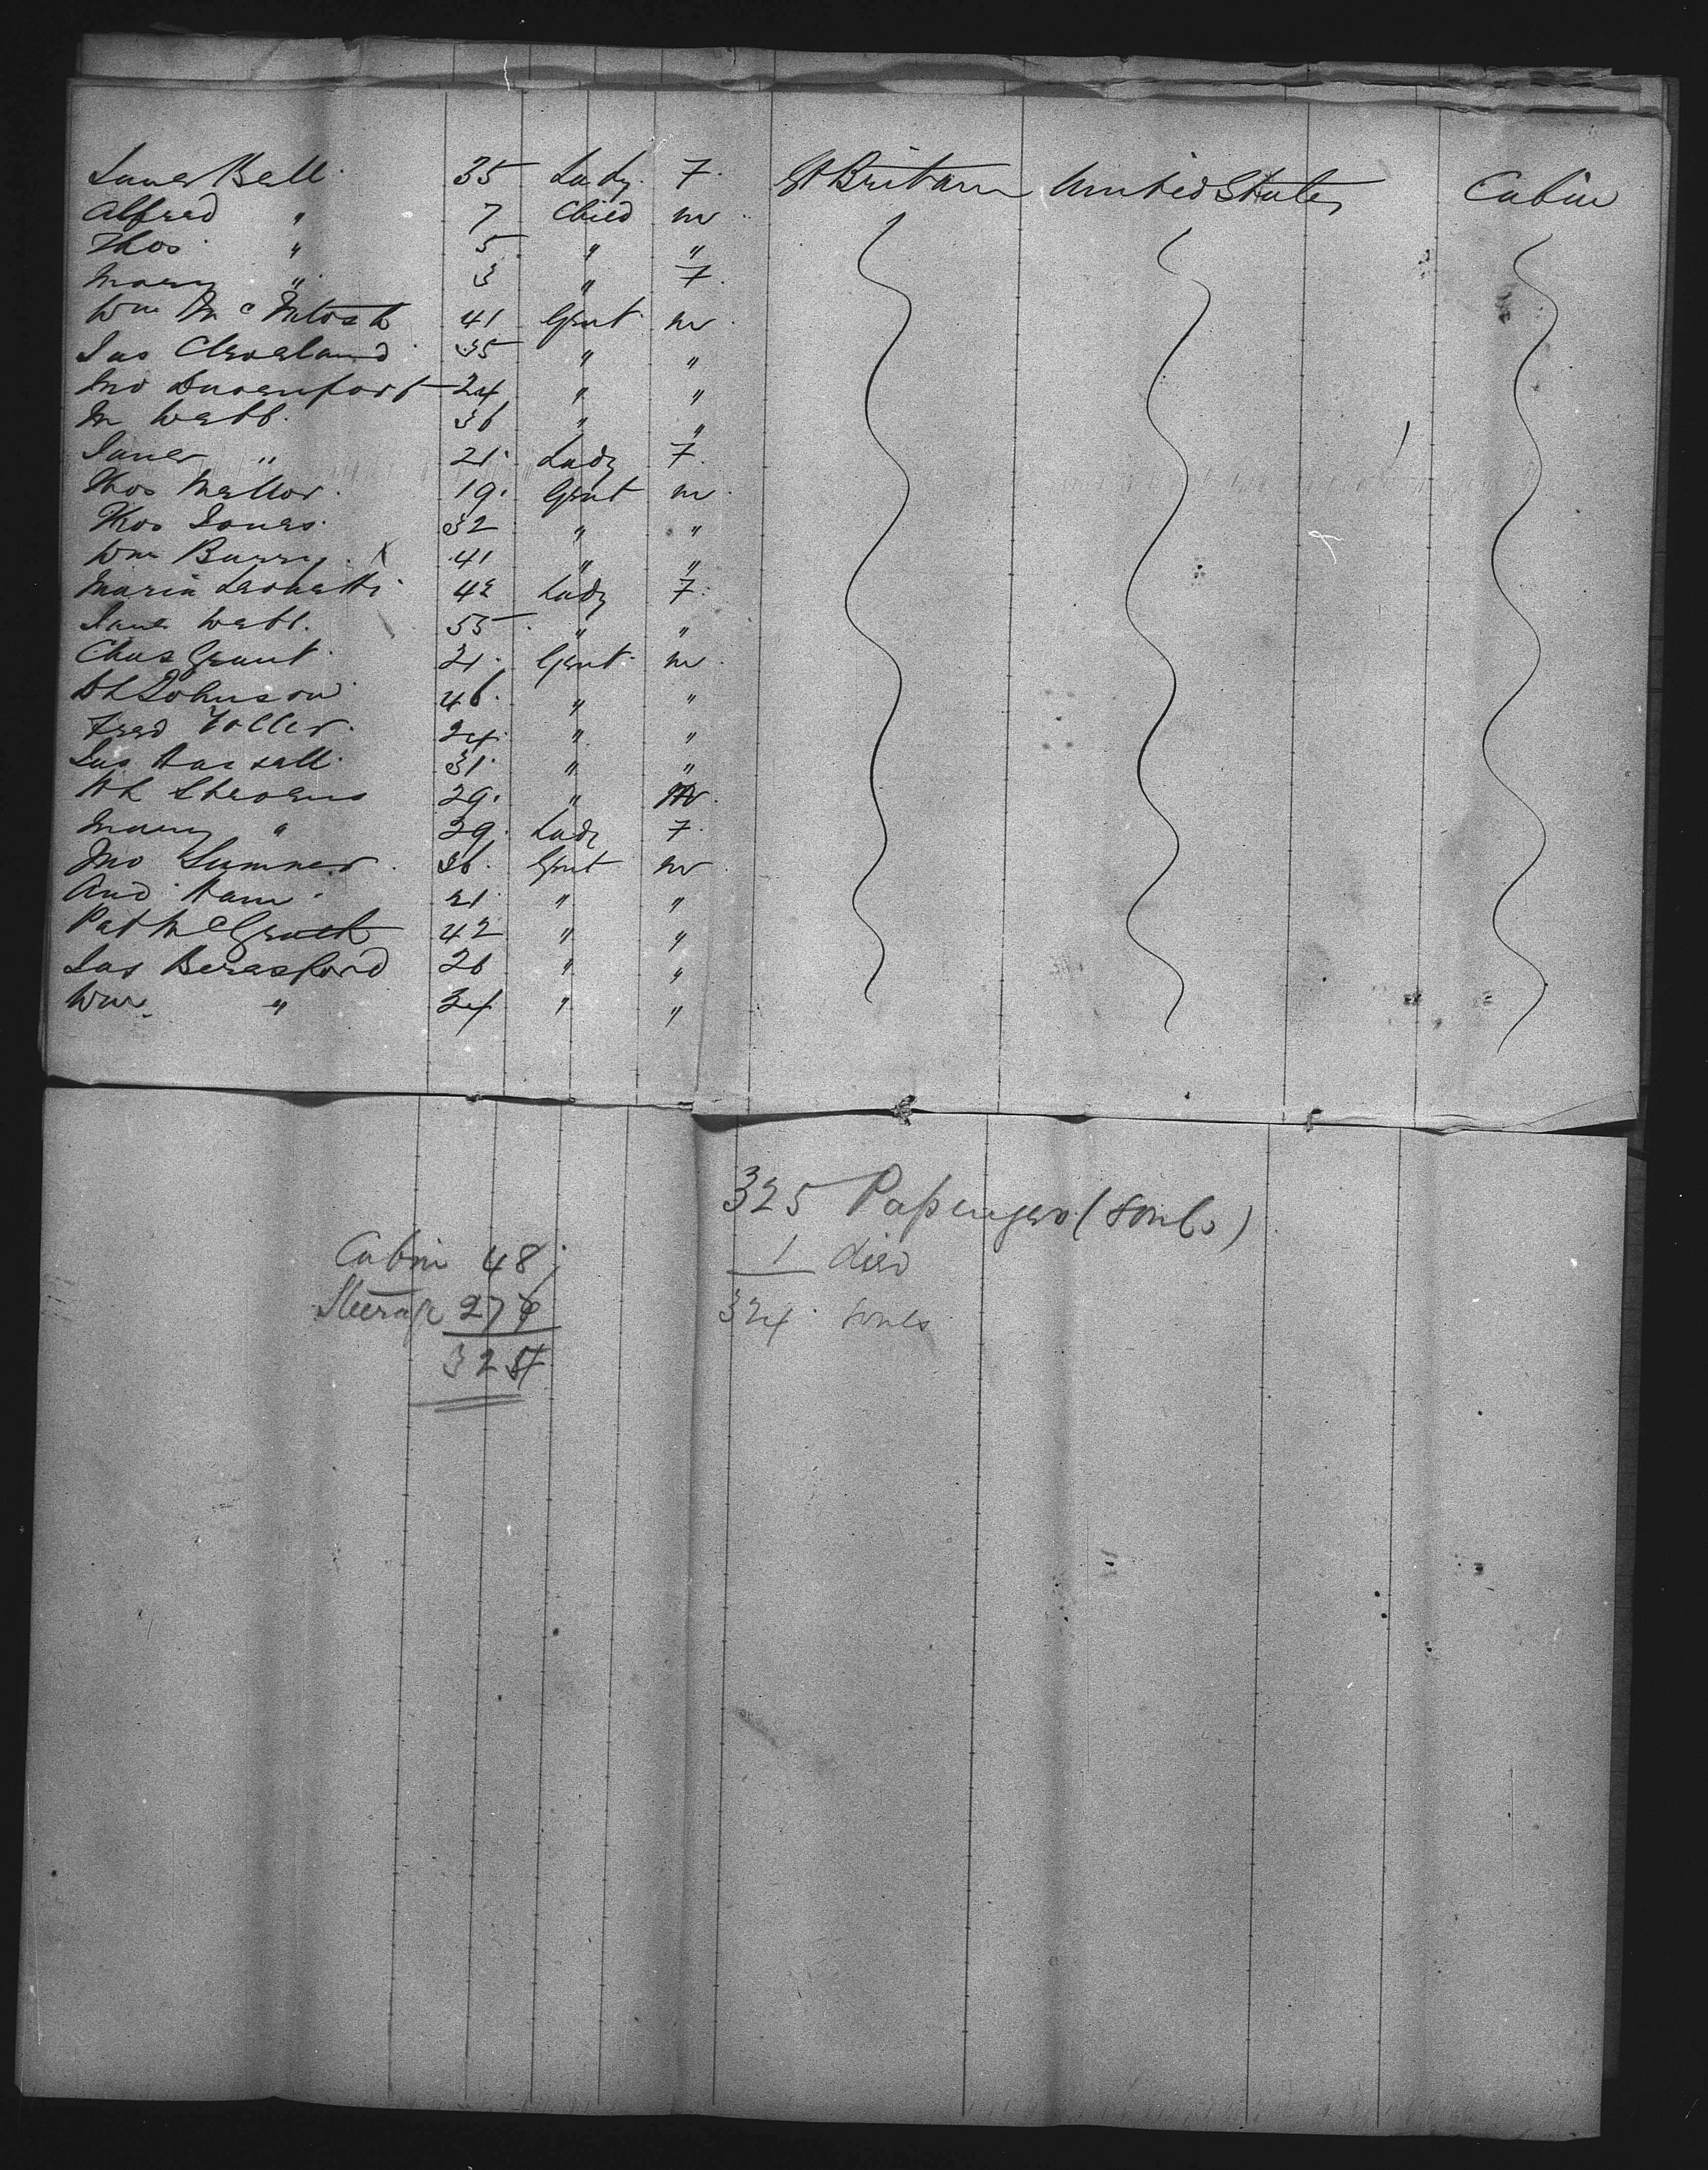 Jane Bell 35 Lady F Gt Britain United States Cabin
Alfred " 7 Child m
Thos " 5 " "
Mary " 3 " F
Wm McIntosh 41 Gent m
Jas Cleveland 35 " "
Jno Davenport 24 " "
M Webb 36 " "
Jane " 21 Lady F
Thos Mellor 19 Gent m
Thos Jones 32 " "
Wm Barry X 41 " "
Maria 42 Lady F
Jane Webb 55 " "
Chas Grant 21 Gent m
Johnson 46 " "
Fred 24 " "
Jas 31 " "
Stevens 29 " M
Mary " 29 Lady F
Jno Sumner 36 Gent m
And Ham 21 " "
Pat McGrath 42 " "
Jas Beresford 26 " "
Wm " 24 " "
325 Passengers (souls)
Cabin 48 1 died
Steerage 276 324 souls
324